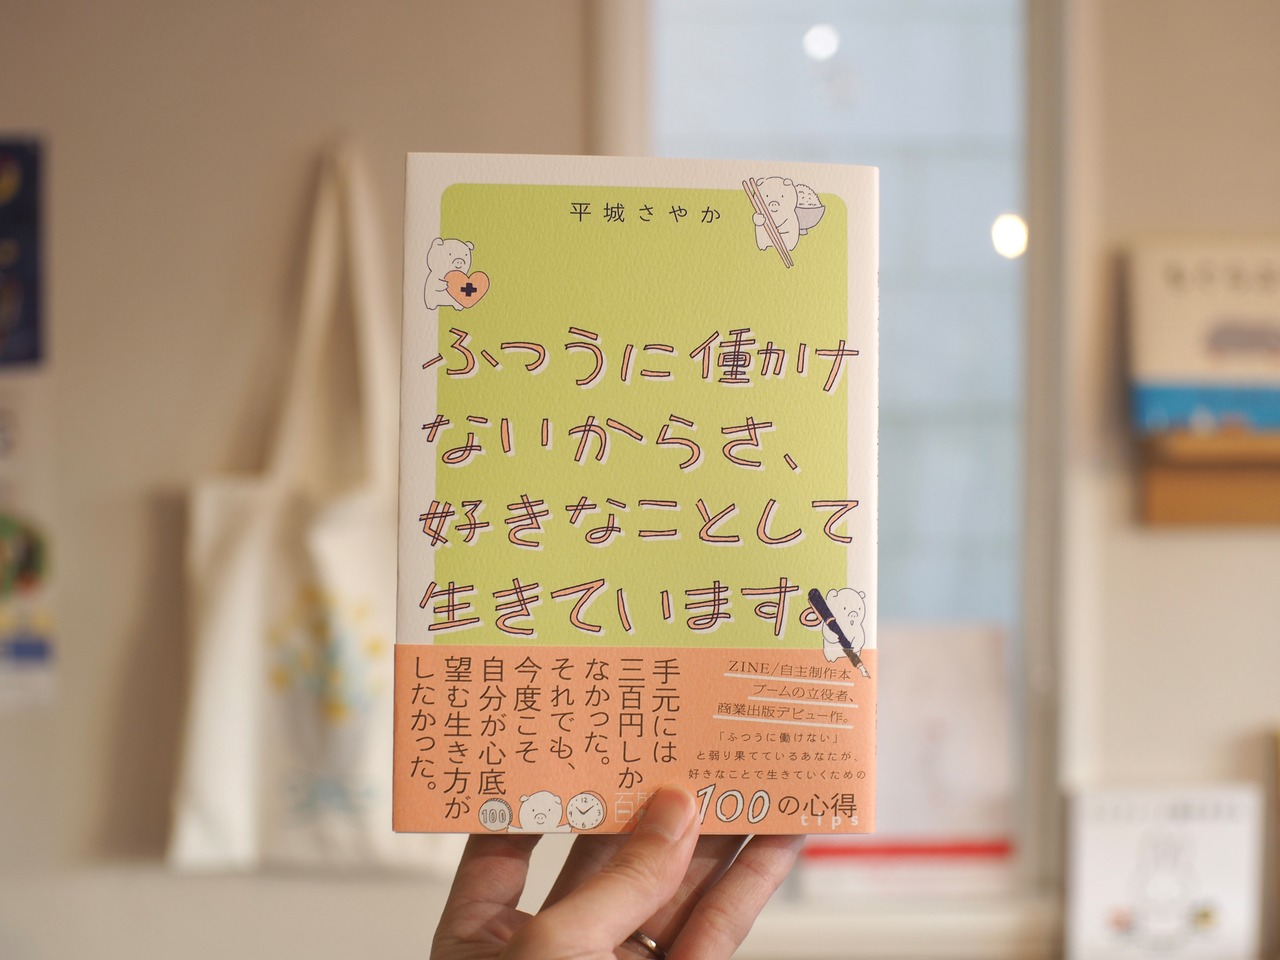 平城さやか
ふつうに働け
ないからさ、
好きなことして
生きています。
手元には
三百円しか
なかった。
それでも、
今度こそ
自分が心底
望む生き方が
したかった。
ZINE/自主制作本
ブームの立役者、
商業出版デビュー作。
「ふつうに働けない」
と弱り果てているあなたが、
好きなことで生きていくための
100の心得
tips
100